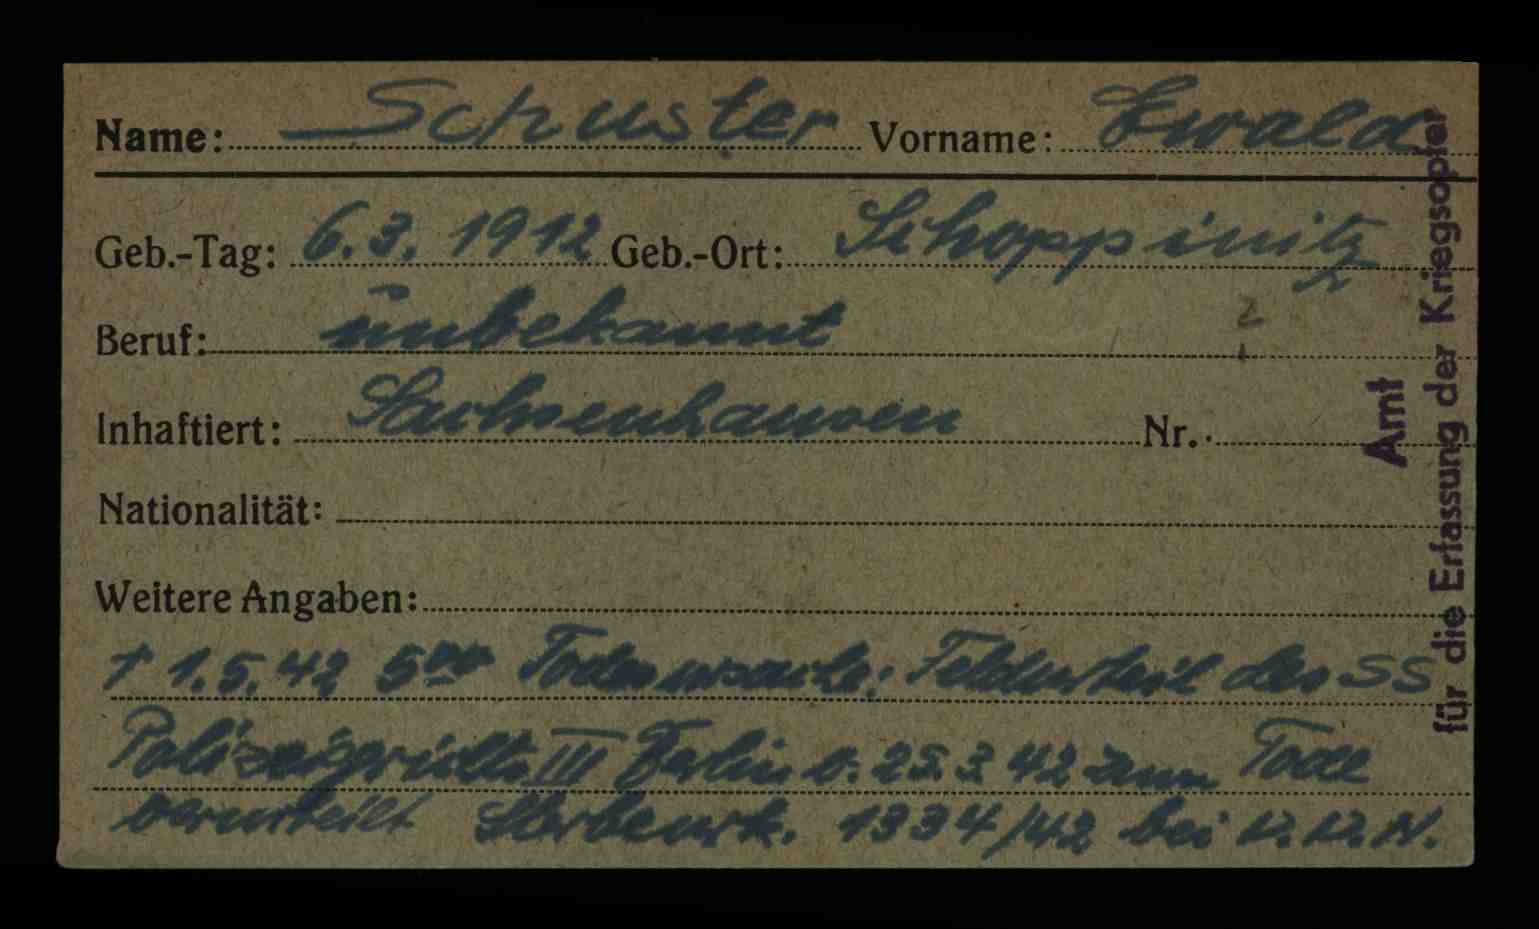 Name: Schuster Vorname: Ewald
Geb.-Tag: 6.3.1912 Geb.-Ort: Schoppinitz
Beruf: unbekannt
2
Inhaftiert: Sachsenhausen Nr.
Nationalität:
Weitere Angaben:
† 1.5.42 5⁰⁰ Todesursache: Feldurteil des SS
Polizeigerichts III Berlin v. 25.3.42 zum Tode
verurteilt Sterbeurk. 1334/42 bei V.V.N.
Amt
für die Erfassung der Kriegsopfer